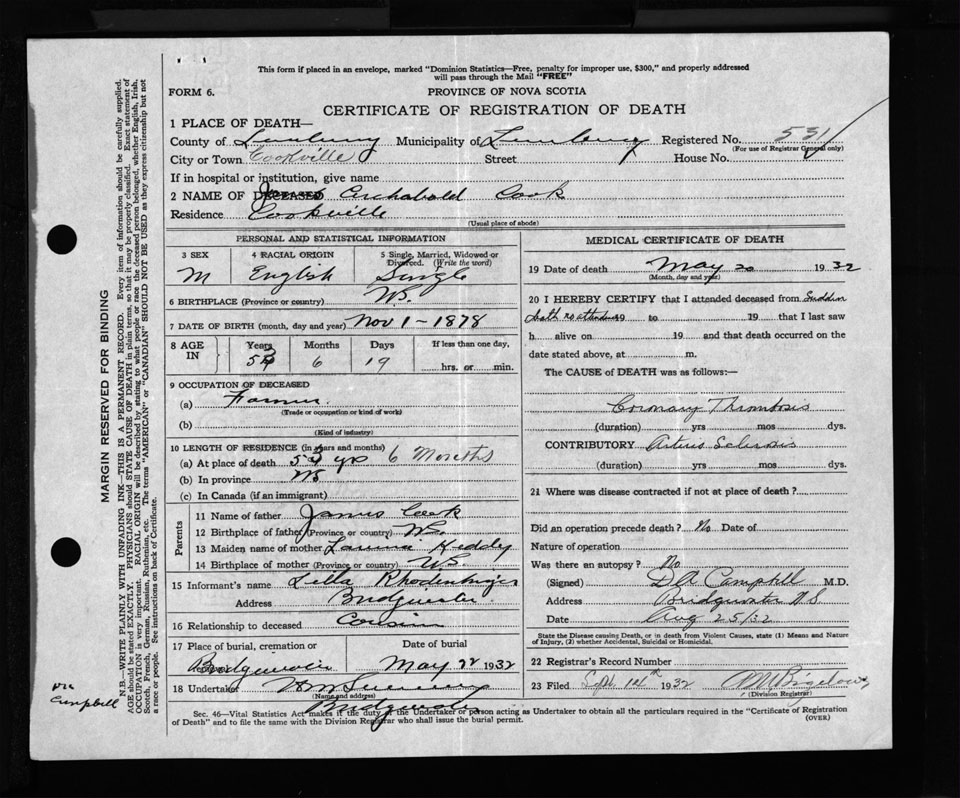 This form if placed in an envelope, marked "Dominion Statistics—Free, penalty for improper use, $300," and properly addressed
will pass through the Mail "FREE"
FORM 6.
PROVINCE OF NOVA SCOTIA
CERTIFICATE OF REGISTRATION OF DEATH
1 PLACE OF DEATH—
County of Lunenburg Municipality of Lunenburg Registered No. 531
(For use of Registrar General only)
City or Town Cookville Street House No.
If in hospital or institution, give name
2 NAME OF DECEASED James Archabald Cook
Residence Cookville
(Usual place of abode)
PERSONAL AND STATISTICAL INFORMATION
3 SEX 4 RACIAL ORIGIN 5 Single, Married, Widowed or Divorced. (Write the word)
M English Single
6 BIRTHPLACE (Province or country) N.S.
7 DATE OF BIRTH (month, day and year) Nov 1 - 1878
8 AGE IN Years Months Days If less than one day,
53 6 19 hrs. or min.
9 OCCUPATION OF DECEASED
(a) Farmer
(Trade or occupation or kind of work)
(b)
(Kind of industry)
10 LENGTH OF RESIDENCE (in years and months)
(a) At place of death 53 yrs 6 Months
(b) In province NS
(c) In Canada (if an immigrant)
Parents
11 Name of father James Cook
12 Birthplace of father (Province or country) N.S.
13 Maiden name of mother Keddy
14 Birthplace of mother (Province or country) N.S.
15 Informant's name Lella Rhodenhizer
Address Bridgewater
16 Relationship to deceased Cousin
17 Place of burial, cremation or Date of burial
Bridgewater May 22 1932
18 Undertaker Wm
(Name and address)
Bridgewater
MEDICAL CERTIFICATE OF DEATH
19 Date of death May 20 1932
(Month, day and year)
20 I HEREBY CERTIFY that I attended deceased from Sudden
death no attendance 19 to 19 that I last saw
h alive on 19 and that death occurred on
date stated above, at m.
The CAUSE of DEATH was as follows:—
Coronary Thrombosis
(duration) yrs mos dys.
CONTRIBUTORY Arterio Sclerosis
(duration) yrs mos dys.
21 Where was disease contracted if not at place of death?
Did an operation precede death? No Date of
Nature of operation
Was there an autopsy? No
(Signed) D A Campbell M.D.
Address Bridgewater N S
Date Aug 25/32
State the Disease causing Death, or in death from Violent Causes, state (1) Means and Nature of Injury, (2) whether Accidental, Suicidal or Homicidal.
22 Registrar's Record Number
23 Filed Sept. 14th 1932 Bigelow
(Division Registrar)
Sec. 46—Vital Statistics Act makes it the duty of the Undertaker or person acting as Undertaker to obtain all the particulars required in the "Certificate of Registration
of Death" and to file the same with the Division Registrar who shall issue the burial permit.
(OVER)
MARGIN RESERVED FOR BINDING
N.B.—WRITE PLAINLY WITH UNFADING INK—THIS IS A PERMANENT RECORD. Every item of information should be carefully supplied.
AGE should be stated EXACTLY. PHYSICIANS should STATE CAUSE OF DEATH in plain terms, so that it may be properly classified. Exact statement of
OCCUPATION is very important. RACIAL ORIGIN will be described by stating to what people or race the deceased person belonged, whether English, Irish,
Scotch, French, German, Russian, Ruthenian, etc. The terms "AMERICAN" or "CANADIAN" SHOULD NOT BE USED as they express citizenship but not
a race or people. See instructions on back of Certificate.
Campbell